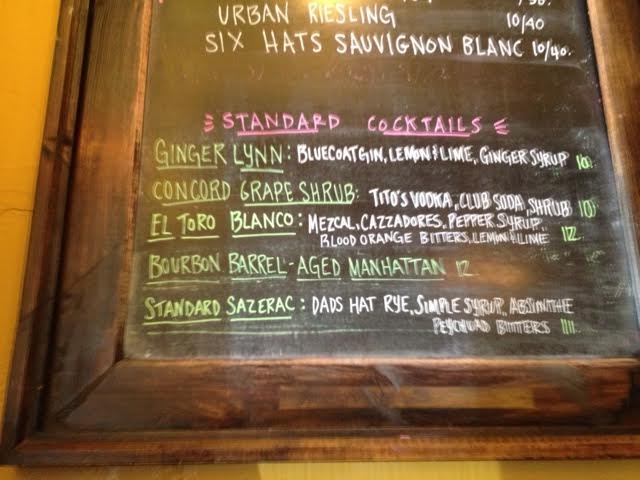 URBAN RIESLING 10/40
SIX HATS SAUVIGNON BLANC 10/40.
STANDARD COCKTAILS
GINGER LYNN: BLUECOAT GIN, LEMON & LIME, GINGER SYRUP 10
CONCORD GRAPE SHRUB: TITO'S VODKA, CLUB SODA, SHRUB 10
EL TORO BLANCO: MEZCAL, CAZZADORES, PEPPER SYRUP,
BLOOD ORANGE BITTERS, LEMON & LIME 12
BOURBON BARREL-AGED MANHATTAN 12
STANDARD SAZERAC: DADS HAT RYE, SIMPLE SYRUP, ABSINTHE
PEYCHAUD BITTERS 11